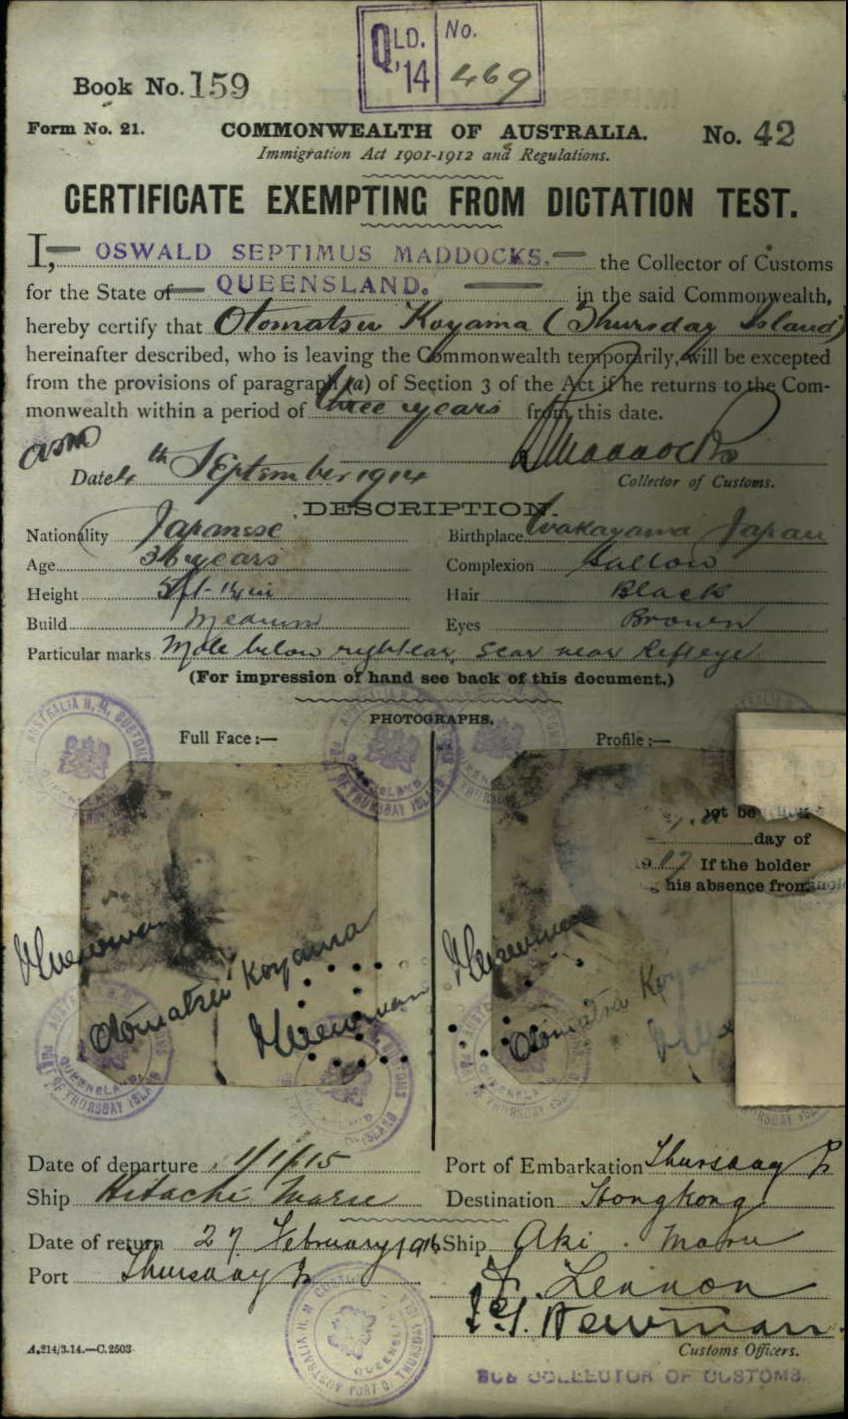 QLD. No.
'14 469
Book No. 159
Form No. 21. COMMONWEALTH OF AUSTRALIA. No. 42
Immigration Act 1901-1912 and Regulations.
CERTIFICATE EXEMPTING FROM DICTATION TEST.
I, OSWALD SEPTIMUS MADDOCKS. the Collector of Customs
for the State of QUEENSLAND. in the said Commonwealth,
hereby certify that Otomatsu Koyama (Thursday Island)
hereinafter described, who is leaving the Commonwealth temporarily, will be excepted
from the provisions of paragraph (a) of Section 3 of the Act if he returns to the Com-
monwealth within a period of three years from this date.
OSMaddocks
Date 4th September 1914 Collector of Customs.
DESCRIPTION.
Nationality Japanese Birthplace Wakayama Japan
Age 36 years Complexion Sallow
Height 5ft- in Hair Black
Build Medium Eyes Brown
Particular marks Mole below right ear, Scar near left eye
(For impression of hand see back of this document.)
PHOTOGRAPHS.
Full Face:— Profile:—
not be
day of
917 If the holder
his absence from
Otomatsu Koyama
Newman
Newman
Newman
Otomatsu Koyama
AUSTRALIA H.M. CUSTOMS
QUEENSLAND
PORT OF THURSDAY ISLAND
Date of departure 1/1/15 Port of Embarkation Thursday Is
Ship Hitachi Maru Destination Hongkong
Date of return 27 February 1916 Ship Aki Maru
Port Thursday Is
F. Lennon
Newman
Customs Officers.
A.214/3.14.—C.2503
SUB COLLECTOR OF CUSTOMS.